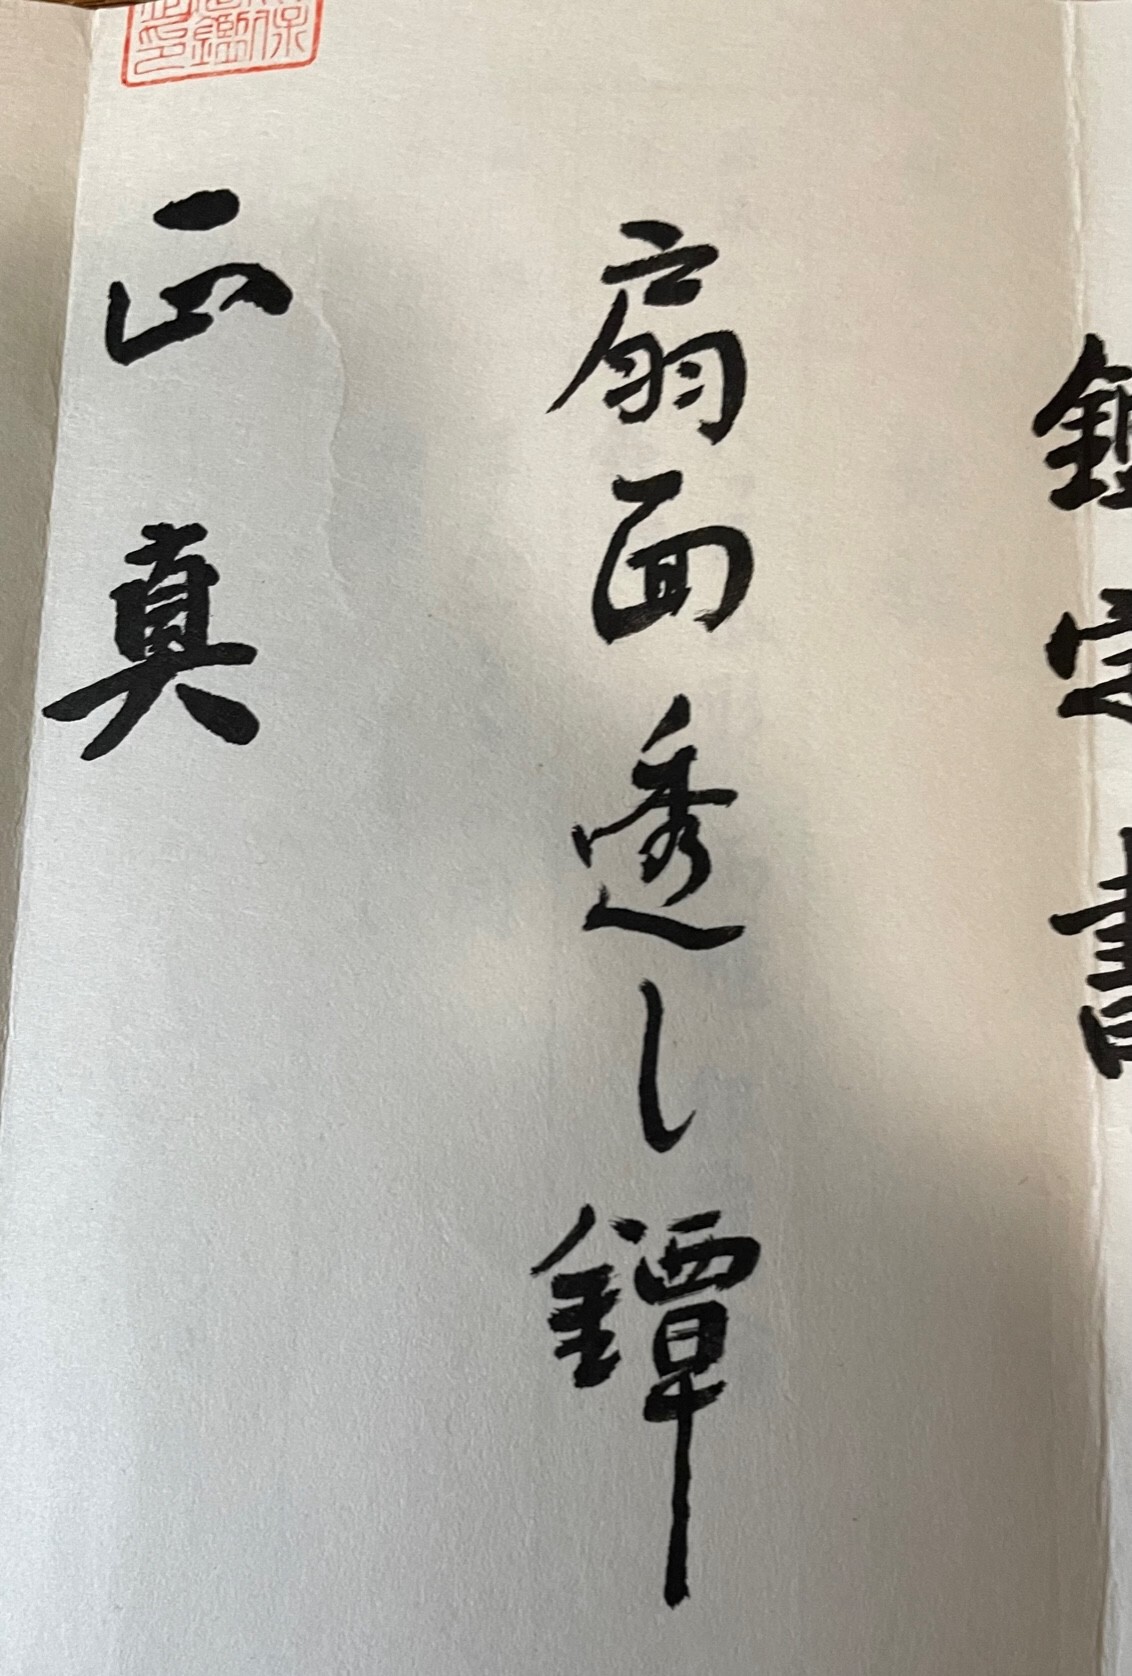 鑑定書
扇面透し鐔
正真